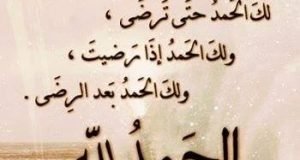 لكَ الحَمدُ حتَّى تَرضَى ،
ولكَ الحَمدُ إذَا رَضيتَ ،
ولكَ الحَمدُ بَعد الرِضَى .
الحَمدُ للهِ